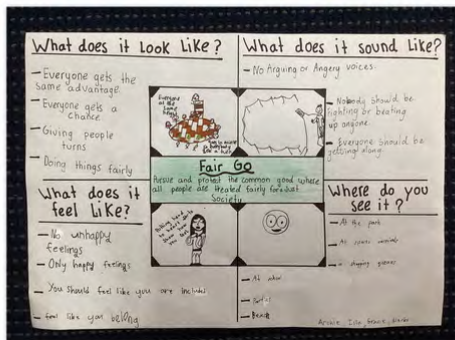 What does it Look Like?
- Everyone gets the
same advantage.
- Everyone gets a
chance
- Giving people
turns
- Doing things fairly
What does it sound Like?
- No Arguing or Angery voices.
- Nobody should be
fighting or beating
up anyone.
- Everyone should be
getting along.
Everyone
at the
same
Fair Go
Pursue and protect the common good where
all people are treated fairly for a just
Society
What does it
feel Like?
- No unhappy
feelings
- Only happy feelings
- You should feel like you are included
- feel like you belong
Where do you
see it?
- At the park
- At
- shopping
- At school
- Beach